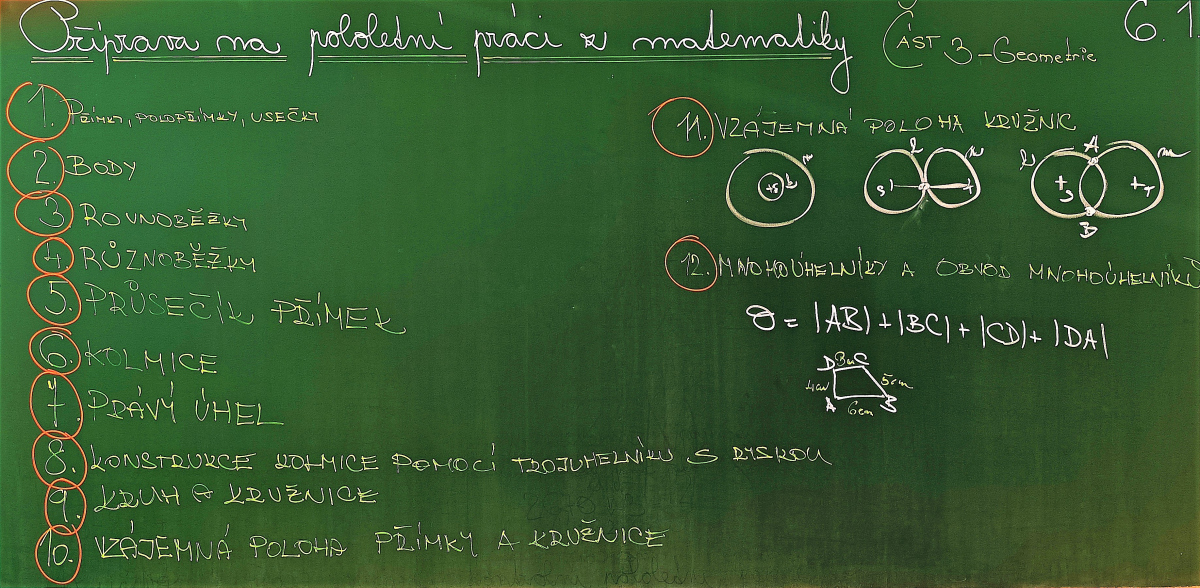 Příprava na pololetní práci z matematiky ČÁST 3-Geometrie 6.1
1. PŘÍMKY, POLOPŘÍMKY, USEČKY
2. BODY
3. ROVNOBĚŽKY
4. RŮZNOBĚŽKY
5. PRŮSEČÍK PŘÍMEK
6. KOLMICE
7. PRÁVÝ ÚHEL
8. KONSTRUKCE KOLMICE POMOCÍ TROJUHELNÍKU S RYSKOU
9. KRUH A KRUŽNICE
10. VZÁJEMNÁ POLOHA PŘÍMKY A KRUŽNICE
11. VZÁJEMNÁ POLOHA KRUŽNIC
S
S
A
S
B
12. MNOHOÚHELNÍKY A OBVOD MNOHOÚHELNÍKŮ
O = |AB| + |BC| + |CD| + |DA|
D 3cm C
4cm 5cm
A 6cm B